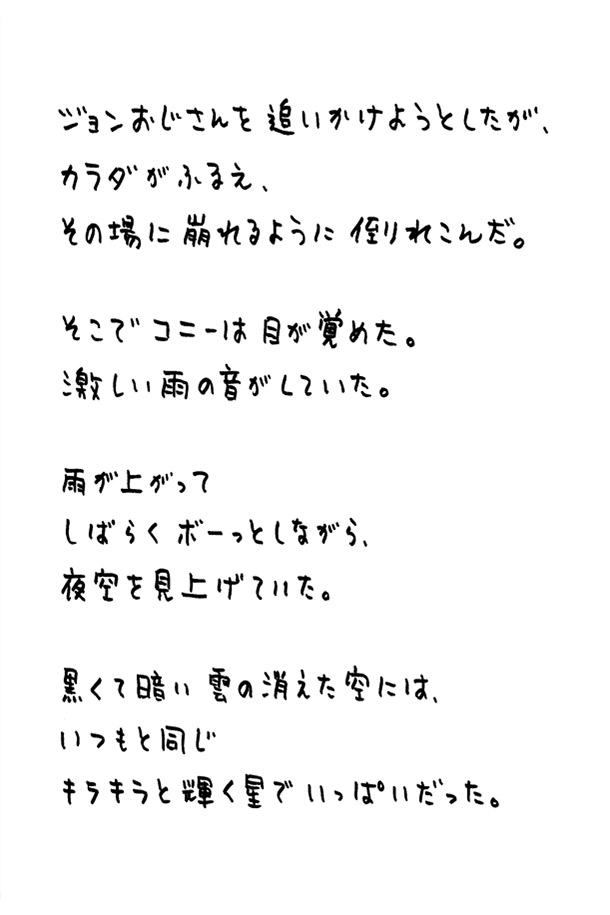 ジョンおじさんを 追いかけようとしたが、
カラダがふるえ、
その場に 崩れるように 倒れこんだ。
そこで コニーは 目が覚めた。
激しい 雨の音がしていた。
雨が上がって
しばらく ボーっとしながら、
夜空を見上げていた。
黒くて暗い 雲の消えた空には、
いつもと同じ
キラキラと輝く星で いっぱいだった。